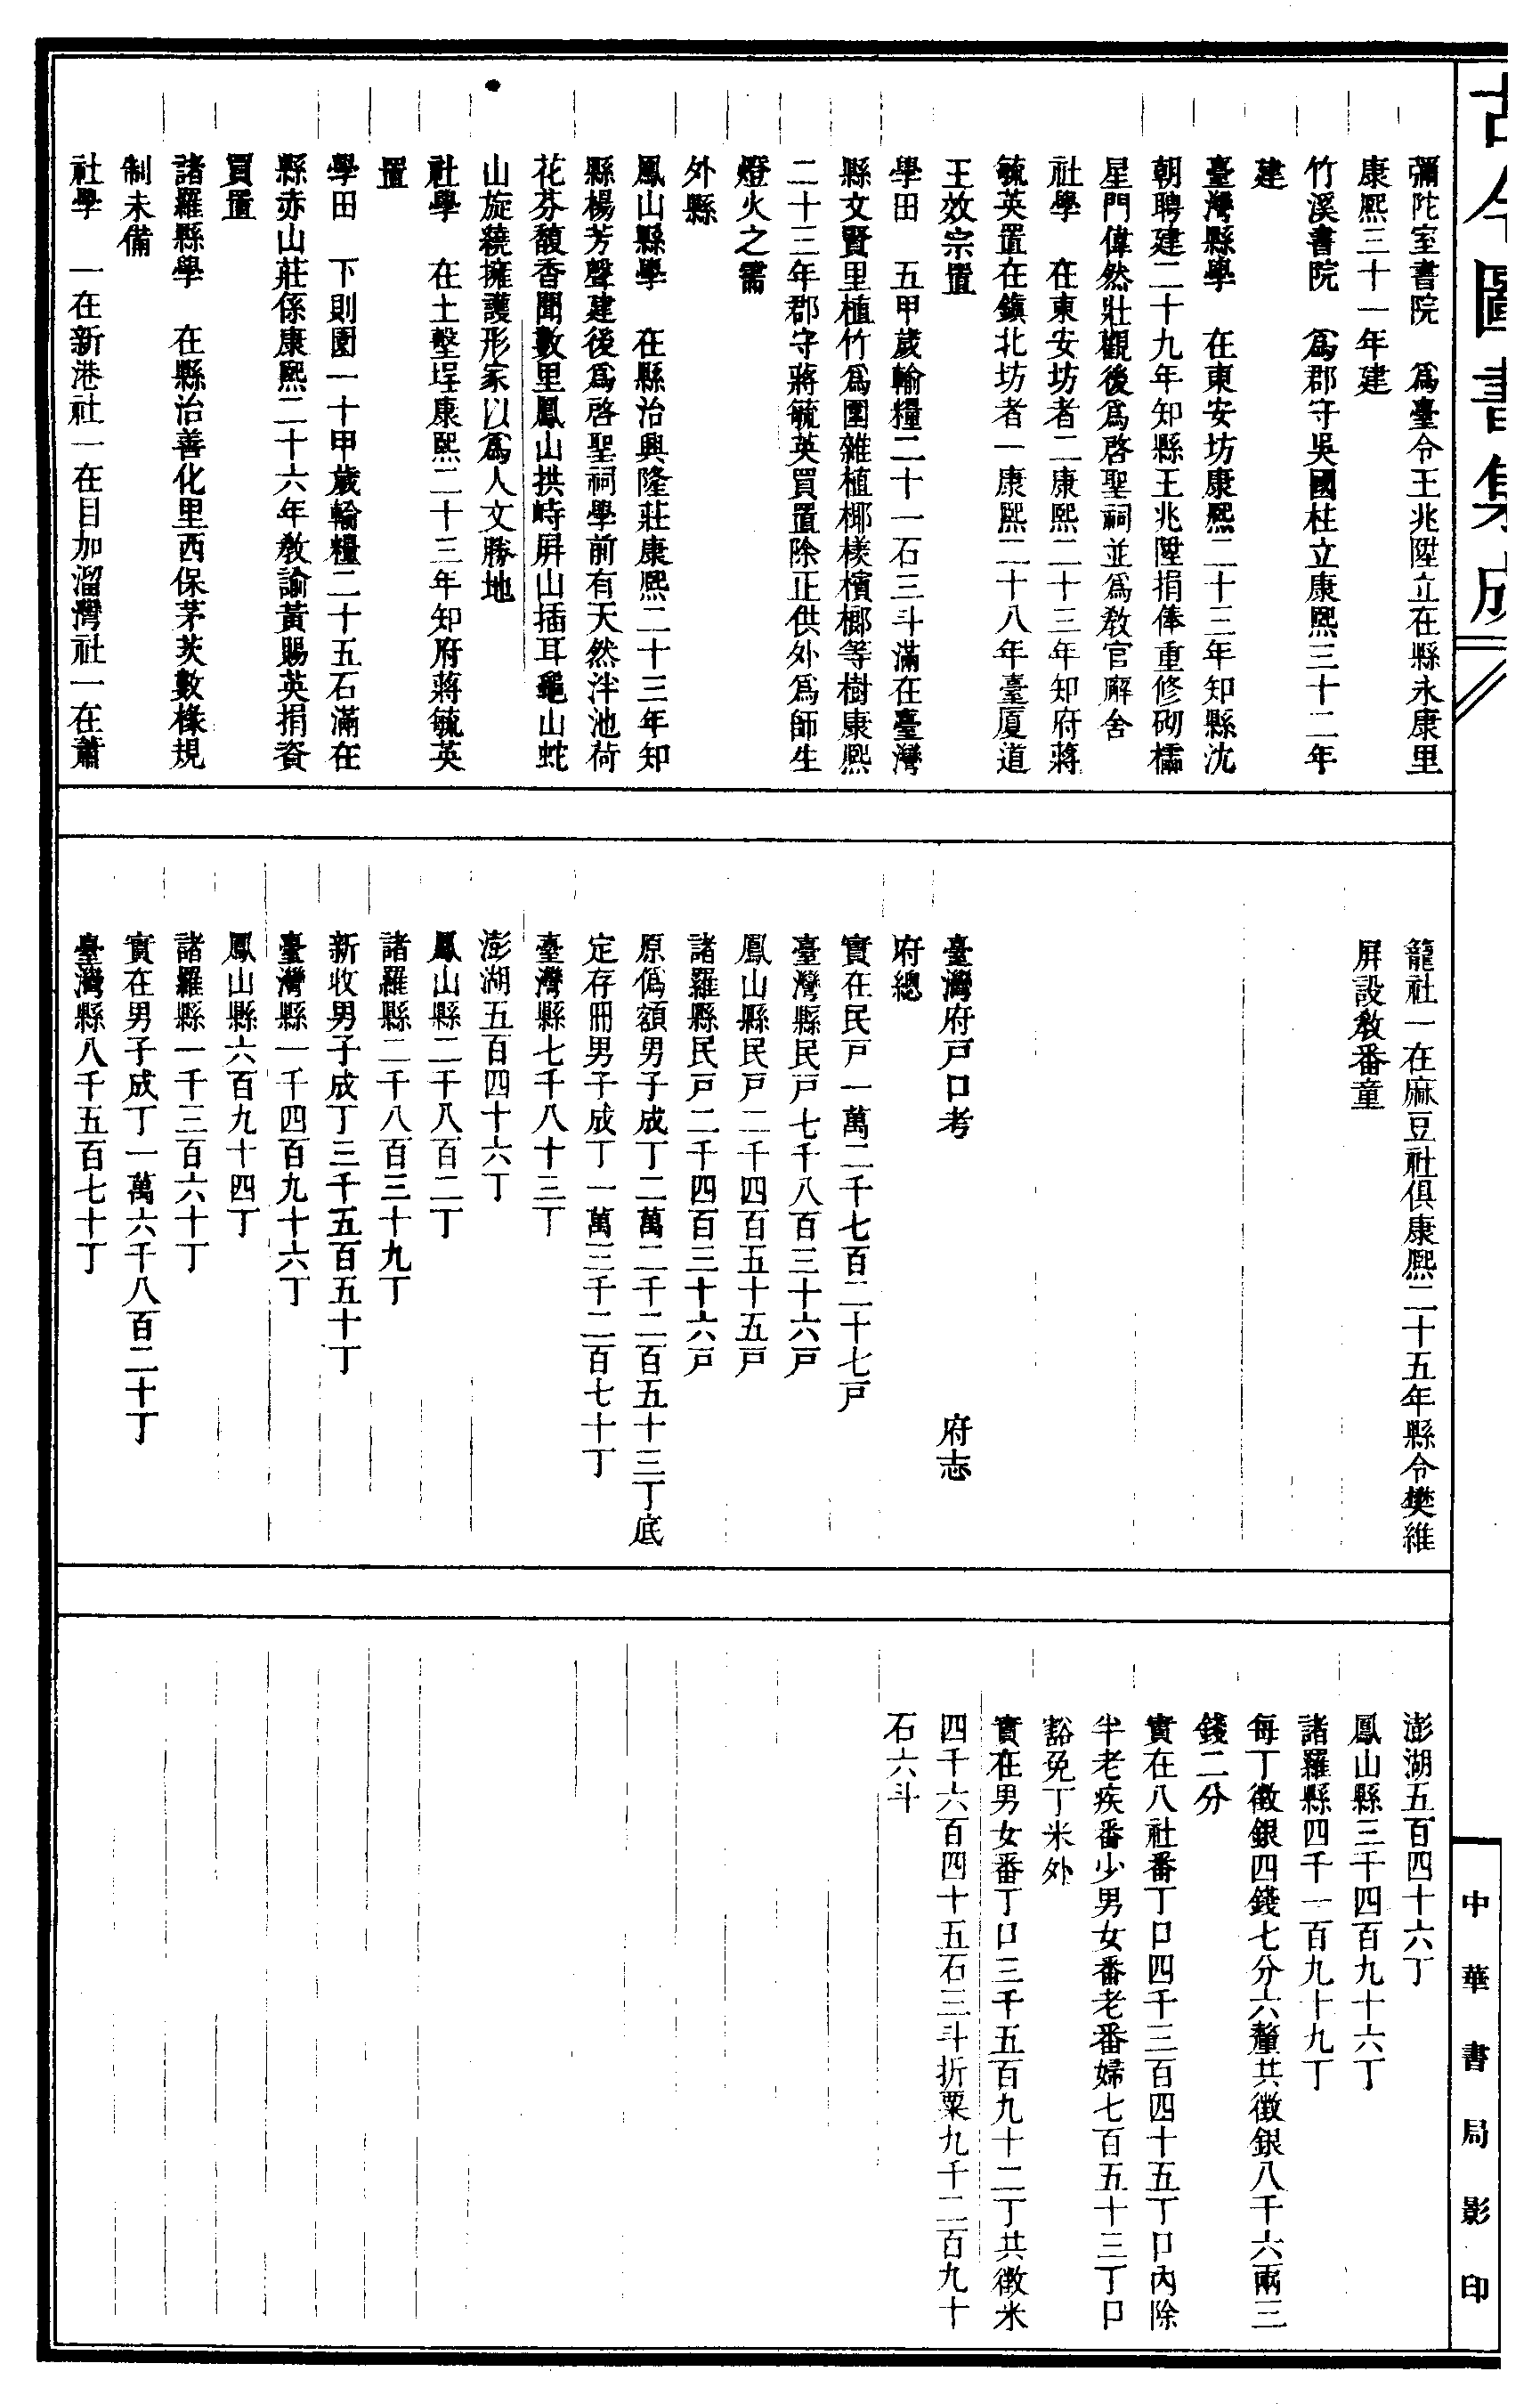 古今圖書集成
彌陀室書院　為臺令王兆陞立在縣永康里
康熙三十一年建
竹溪書院　為郡守吳國柱立康熙三十二年
建
臺灣縣學　在東安坊康熙二十三年知縣沈
朝聘建二十九年知縣王兆陞捐俸重修砌櫺
星門偉然壯觀後為啓聖祠並為教官廨舍
社學　在東安坊者二康熙二十三年知府蔣
毓英置在鎮北坊者一康熙二十八年臺厦道
王效宗置
學田　五甲歲輸糧二十一石三斗滿在臺灣
縣文賢里植竹為圍雜植椰樣檳榔等樹康熙
二十三年郡守蔣毓英買置除正供外為師生
燈火之需
外縣
鳳山縣學　在縣治興隆莊康熙二十三年知
縣楊芳聲建後為啓聖祠學前有天然泮池荷
花芬馥香聞數里鳳山拱峙屏山插耳龜山蛇
山旋繞擁護形家以為人文勝地
社學　在土墼埕康熙二十三年知府蔣毓英
置
學田　下則園一十甲歲輸糧二十五石滿在
縣赤山莊係康熙二十六年教諭黃賜英捐資
買置
諸羅縣學　在縣治善化里西保茅茨數椽規
制未備
社學　一在新港社一在目加溜灣社一在蕭
籠社一在麻豆社俱康熙二十五年縣令樊維
屏設教番童
臺灣府戸口考　府志
府總
實在民戸一萬二千七百二十七戸
臺灣縣民戸七千八百三十六戸
鳳山縣民戸二千四百五十五戸
諸羅縣民戸二千四百三十六戸
原偽額男子成丁二萬二千二百五十三丁底
定存冊男子成丁一萬三千二百七十丁
臺灣縣七千八十三丁
澎湖五百四十六丁
鳳山縣二千八百二丁
諸羅縣二千八百三十九丁
新收男子成丁三千五百五十丁
臺灣縣一千四百九十六丁
鳳山縣六百九十四丁
諸羅縣一千三百六十丁
實在男子成丁一萬六千八百二十丁
臺灣縣八千五百七十丁
澎湖五百四十六丁
鳳山縣三千四百九十六丁
諸羅縣四千一百九十九丁
每丁徵銀四錢七分六釐共徵銀八千六兩三
錢二分
實在八社番丁口四千三百四十五丁口內除
半老疾番少男女番老番婦七百五十三丁口
豁免丁米外
實在男女番丁口三千五百九十二丁共徵米
四千六百四十五石三斗折粟九千二百九十
石六斗
中華書局影印